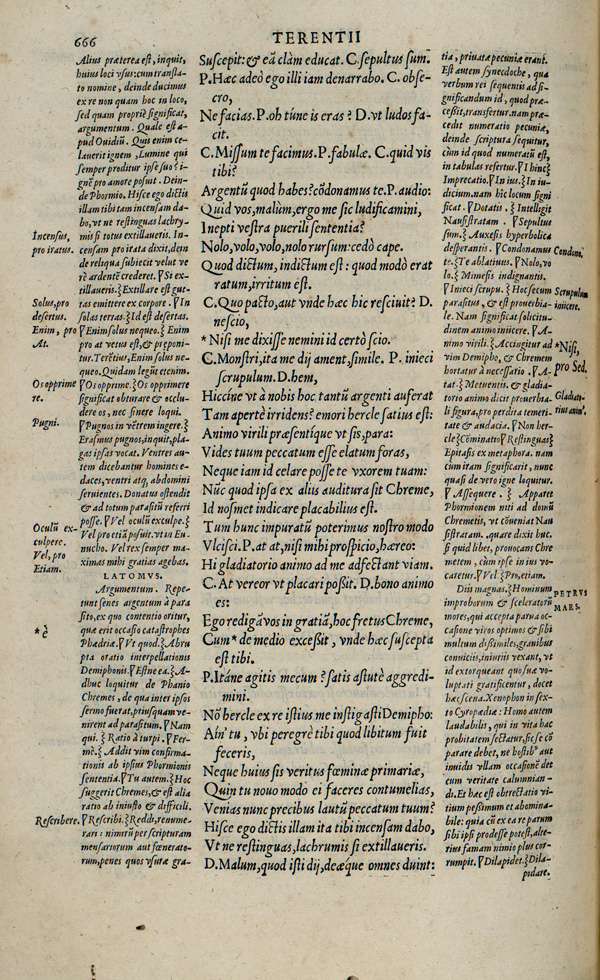 666
TERENTII
Alius præterea est, inquit,
huius loci vsus: cum transla-
to nomine, deinde ducimus
ex re non quam hoc in loco,
sed quam propriè significat,
argumentum. Quale est a-
pud Ouidiũ. Quis enim ce-
lauerit ignem, Lumine qui
semper proditur ipse suo? i-
gnẽ pro amore posuit. Dein-
de Phormio. Hisce ego dictis
illam tibi tam incensam da-
bo, vt ne restinguas lachry-
mis si totus extillaueris. In-
censam pro irata dixit, dein
de reliqua subiecit velut ve
rè ardentẽ crederet. ꝶ Si ex-
tillaueris. ⁆ Extillare est gut-
tas emittere ex corpore. ꝶ In
solas terras. ⁆ Id est desertas.
ꝶ Enim solus nequeo. ⁆ Enim
pro at vetus est, & præponi-
tur. Terẽtius, Enim solus ne-
queo. Quidam legũt etenim.
ꝶ Os opprime. ⁆ Os opprimere
significat obturare & occlu-
dere os, nec sinere loqui.
ꝶ Pugnos in vẽtrem ingere. ⁆
Erasmus pugnos, inquit, pla-
gas ipsas vocat. Ventres au-
tem dicebantur homines e-
daces, ventri atq, abdomini
seruientes. Donatus ostendit
& ad totum parasitũ referri
posse. ꝶ Vel oculũ exculpe. ⁆
Vel pro etiã posuit. vt in Eu-
nucho. Vel rex semper ma-
ximas mihi gratias agebas.
LATOMVS.
Argumentum. Repe-
tunt senes argentum à para
sito, ex quo contentio oritur,
quæ erit occasio catastrophes
Phædriæ. ꝶ Vt quod. ⁆ Abru
pta oratio interpellationis
Demiphonis. ꝶ Estne ea. ⁆ A-
dhuc loquitur de Phanio
Chremes, de qua inter ipsos
sermo fuerat, priusquam ve-
nirent ad parasitum. ꝶ Nam
qui. ⁆ Ratio à turpi. ꝶ Fer-
mè. ⁆ Addit vim confirma-
tionis ab ipsius Phormionis
sententia. ꝶ Tu autem. ⁆ Hoc
suggerit Chremes, & est alia
ratio ab iniusto & difficili.
ꝶ Rescribi. ⁆ Reddi, renume-
rari: nimirũ per scripturam
mensariorum aut fœnerato-
rum, penes quos vsuræ gra-
Incensus,
pro iratus.
Solus, pro
desertus.
Enim, pro
At.
Os opprime
re.
Pugni.
Oculũ ex-
culpere.
Vel, pro
Etiam.
* è
Rescribere.
Suscepit: & eã clàm educat. C. sepultus sum.
P. Hæc adeò ego illi iam denarrabo. C. obse-
cro,
Ne facias. P. oh túne is eras? D. vt ludos fa-
cit.
C. Missum te facimus. P. fabulæ. C. quid vis
tibi?
Argentũ quod habes? cõdonamus te. P. audio:
Quid vos, malùm, ergo me sic ludificamini,
Inepti vestra puerili sententia?
Nolo, volo, volo, nolo rursum: cedò cape.
Quod dictum, indictum est: quod modò erat
ratum, irritum est.
C. Quo pacto, aut vnde hæc hic resciuit? D.
nescio,
* Nisi me dixisse nemini id certò scio.
C. Monstri, ita me dij ament, simile. P. inieci
scrupulum. D. hem,
Hiccíne vt à nobis hoc tantũ argenti auferat
Tam apertè irridens? emori hercle satius est:
Animo virili præsentíque vt sis, para:
Vides tuum peccatum esse elatum foras,
Neque iam id celare posse te vxorem tuam:
Nũc quod ipsa ex aliis auditura sit Chreme,
Id nosmet indicare placabilius est.
Tum hunc impuratũ poterimus nostro modo
Vlcisci. P. at at, nisi mihi prospicio, hæreo:
Hi gladiatorio animo ad me adfectant viam.
C. At vereor vt placari possit. D. bono animo
es:
Ego redigã vos in gratiã, hoc fretus Chreme,
Cum * de medio excessit, vnde hæc suscepta
est tibi.
P. Itáne agitis mecum? satis astutè aggredi-
mini.
Nõ hercle ex re istius me instigasti Demipho:
Ain' tu, vbi peregrè tibi quod libitum fuit
feceris,
Neque huius sis veritus fœminæ primariæ,
Quin tu nouo modo ei faceres contumelias,
Venias nunc precibus lautũ peccatum tuum?
Hisce ego dictis illam ita tibi incensam dabo,
Vt ne restinguas, lachrumis si extillaueris.
D. Malum, quod isti dij, deæque omnes duint:
tia, priuatæ pecuniæ erant.
Est autem synecdoche, qua
verbum rei sequentis ad si-
gnificandum id, quod præ-
cessit, transfertur. nam præ-
cedit numeratio pecuniæ,
deinde scriptura sequitur,
cùm id quod numeratũ est,
in tabulas refertur. ꝶ I hinc ⁆
Imprecatio. ꝶ In ius. ⁆ In iu-
dicium. nam hic locum signi
ficat. ꝶ Dotatis. ⁆ Intelligit
Nausistratam. ꝶ Sepultus
sum. ⁆ Auxesis hyperbolica
desperantis. ꝶ Condonamus
te. ⁆ Te ablatiuus. ꝶ Nolo, vo
lo. ⁆ Mimesis indignantis.
ꝶ Inieci scrupu. ⁆ Hoc secum
parasitus, & est prouerbia-
le. Nam significat solicitu-
dinem animo iniicere. ꝶ A-
nimo virili. ⁆ Accingitur ad
vim Demipho, & Chremem
hortatur à necessario. ꝶ A-
tat. ⁆ Metuentis, & gladia-
torio animo dicit prouerbia-
li figura, pro perdita temeri-
tate & audacia. ꝶ Non her-
cle ⁆ Cõminatio ꝶ Restinguas ⁆
Epitasis ex metaphora. nam
cùm iram significarit, nunc
quasi de vero igne loquitur.
ꝶ Assequere. ⁆ Apparet
Phormionem niti ad domũ
Chremetis, vt cõueniat Nau
sistratam. quare dixit huc.
si quid libet, prouocans Chre
metem, cùm ipse in ius vo-
caretur. ꝶ Vel. ⁆ Pro, etiam.
Diis magnas. ⁆ Hominum
improborum & sceleratorũ
mores, qui accepta parua oc-
casione viros optimos & sibi
multum dissimiles, grauibus
conuiciis, iniuriis vexant, vt
id extorqueant quo suæ vo-
luptati gratificentur, docet
hæc scena. Xenophon in sex-
to Cyropædia: Homo autem
laudabilis, qui in vita hac
probitatem sectatur, sic se cõ
parare debet, ne hostib' aut
inuidis vllam occasionẽ det
cum veritate calumnian-
di. Et hæc est obtrectatio vi-
tium pessimum et abomina-
bile: quia cũ ex ea re parum
sibi ipsi prodesse potest, alte-
rius famam nimio plus cor-
rumpit. ꝶ Dilapidet. ⁆ Dila-
pidare.
Condona.
Scrupulum
iniicere.
* Nisi,
pro Sed.
Gladiato-
rius anim'.
PETRVS
MARS.